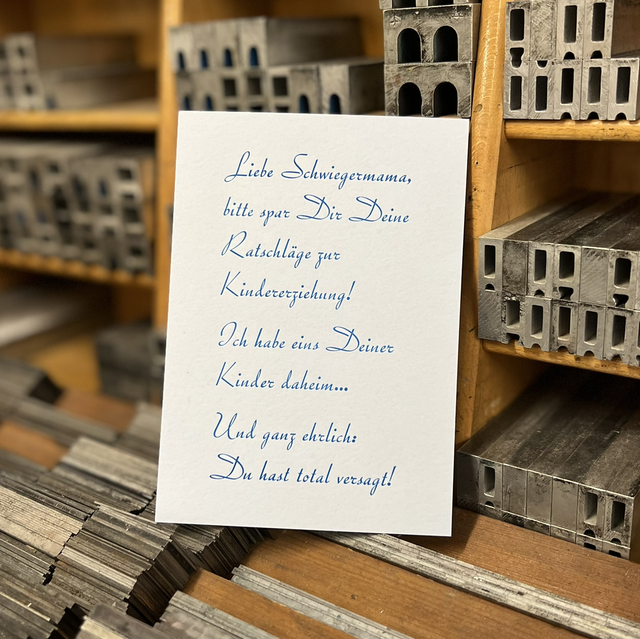 Liebe Schwiegermama,
bitte spar Dir Deine
Ratschläge zur
Kindererziehung!
Ich habe eins Deiner
Kinder daheim...
Und ganz ehrlich:
Du hast total versagt!